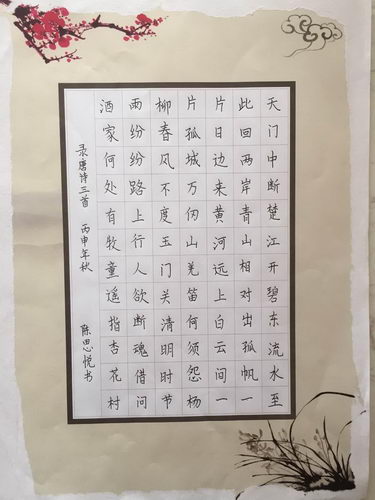 天门中断楚江开碧东流水至
此回两岸青山相对出孤帆一
片日边来黄河远上白云间一
片孤城万仞山羌笛何须怨杨
柳春风不度玉门关清明时节
雨纷纷路上行人欲断魂借问
酒家何处有牧童遥指杏花村
录唐诗三首 丙申年秋 陈思悦书